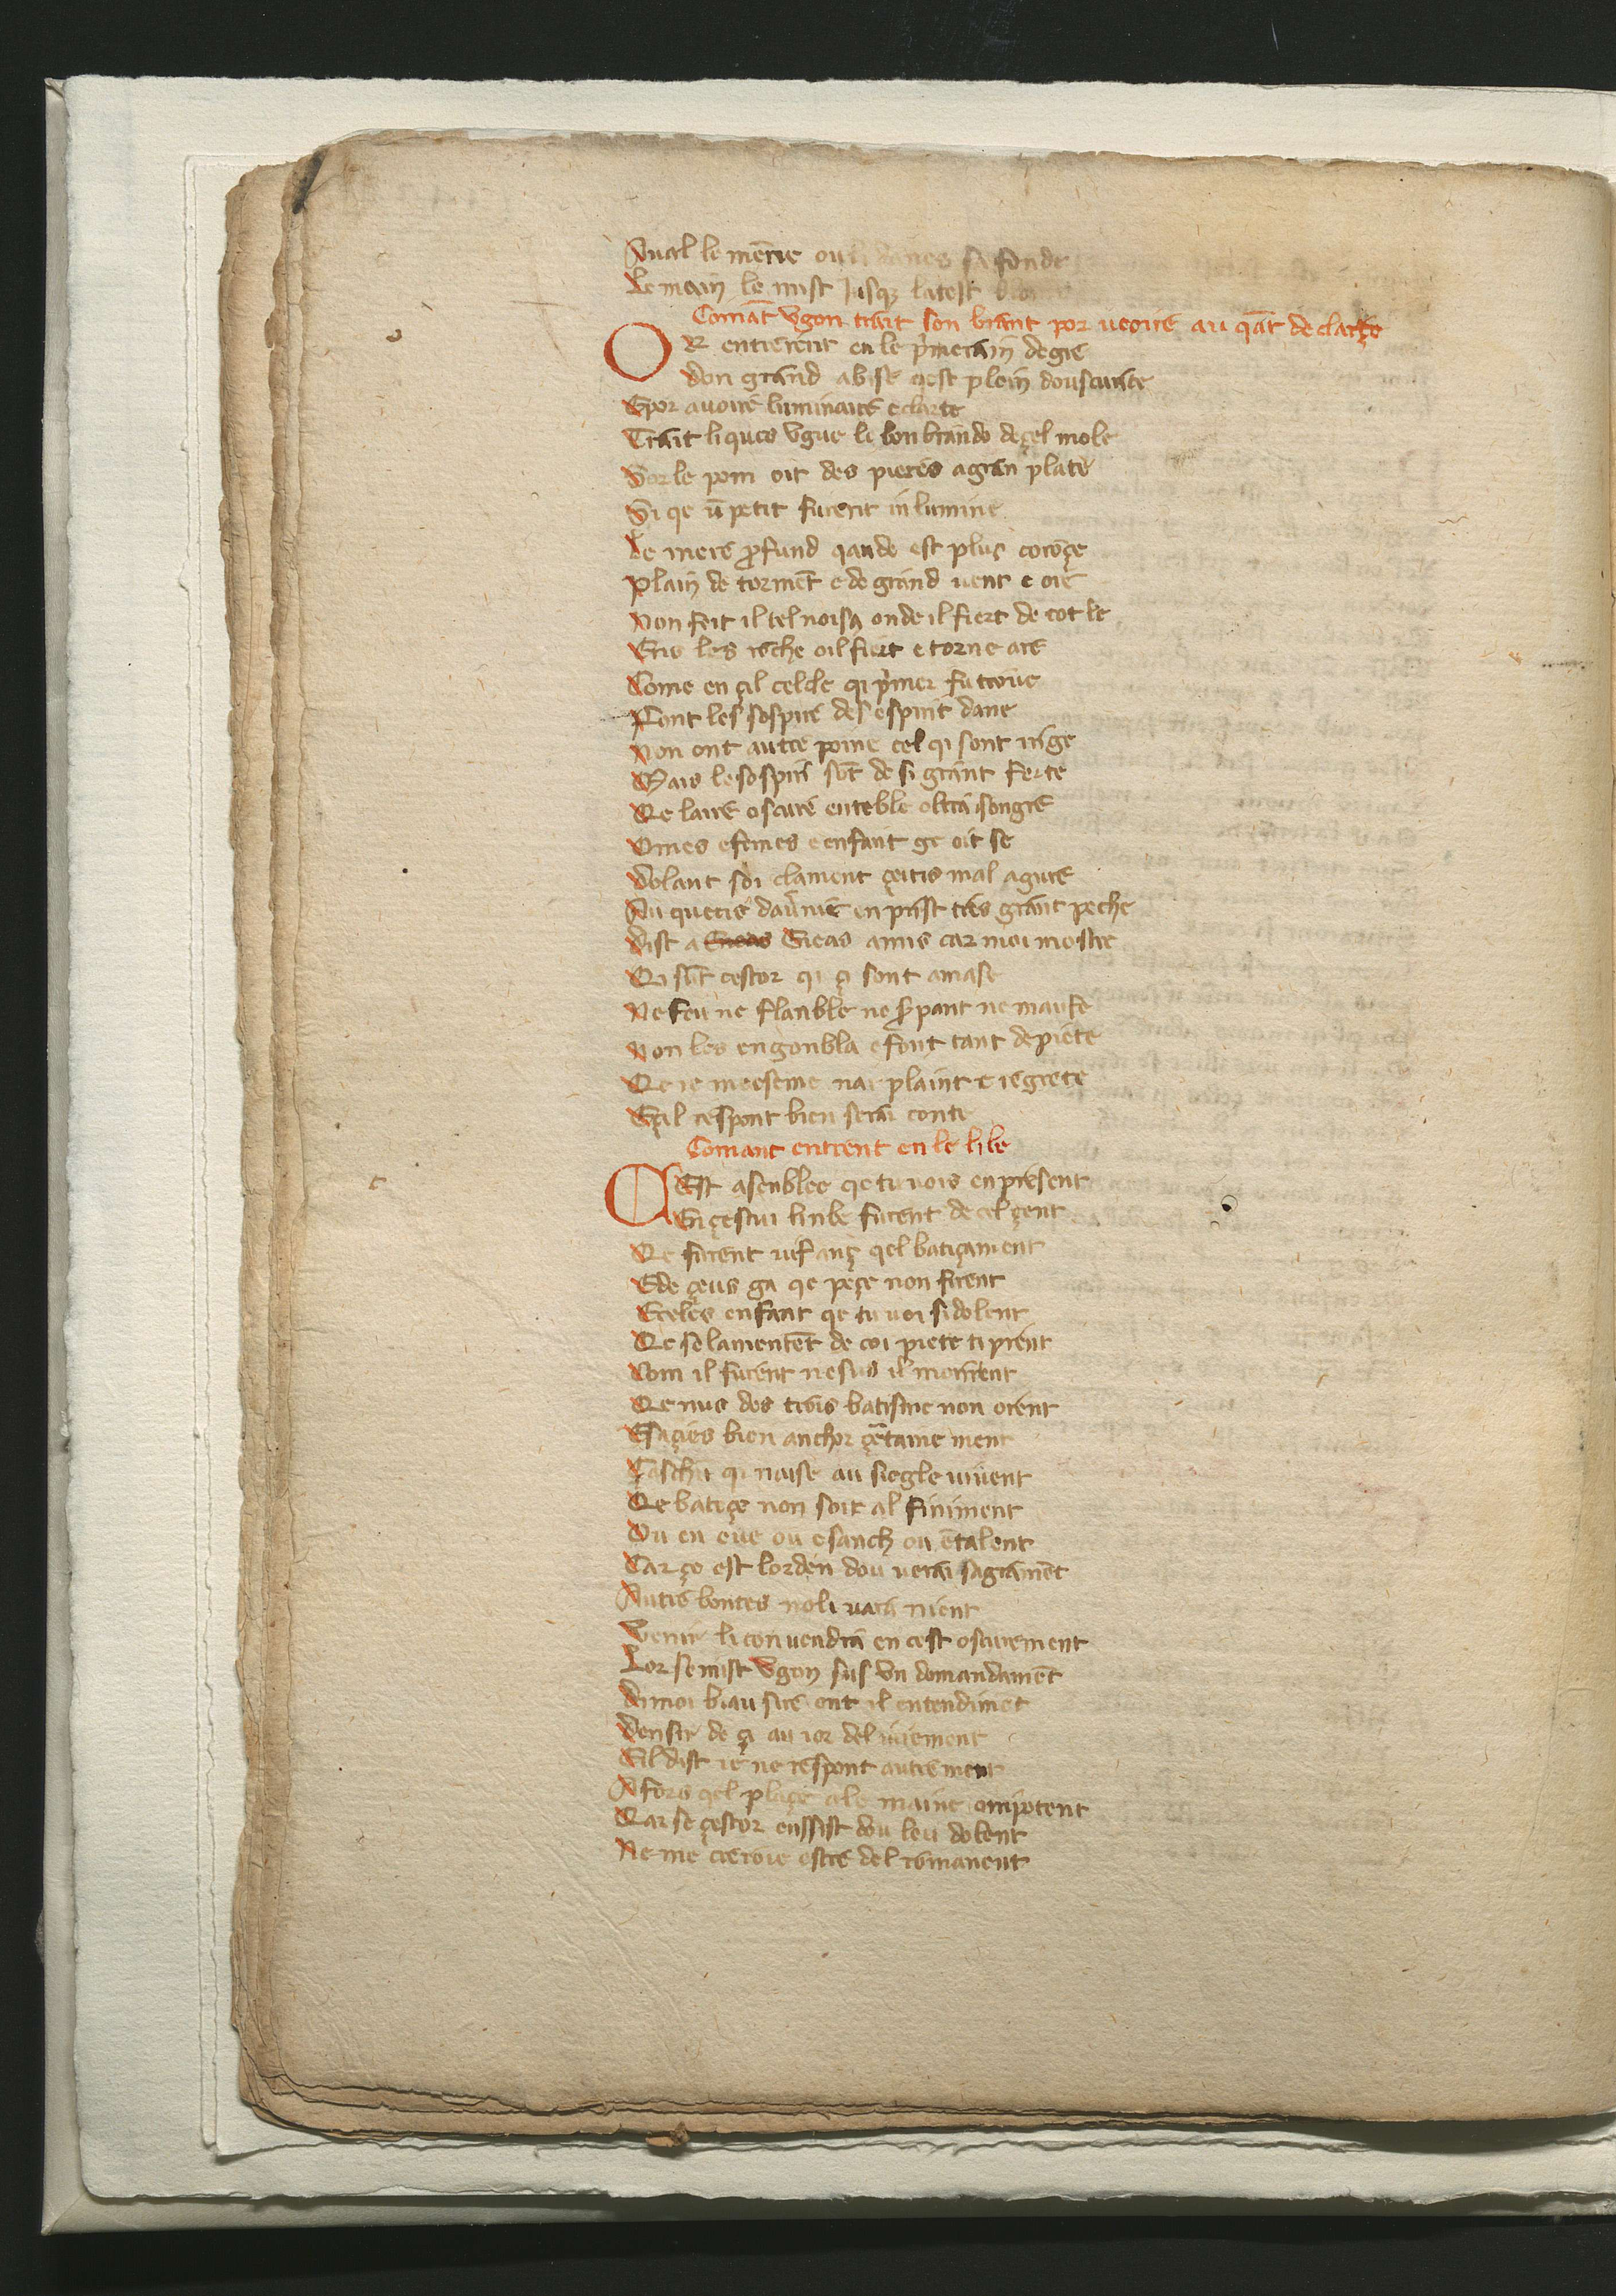 Aual le mẽrie ou li danes sa fonde
Le main le mist Jusqȝ latest
Comãt Vgon trait son brant por ueoire au qãt de clarçe
OR entrerent en le p'merain degre
don grand abise qest plein douscurite
Epor auoire luminaire e clarte
Trait li ques Vgue le bon brando deçel mole
Sor le pom oit des pieres a gran plate
Si qe ũ petit furent inlumine
De mere ꝓfund qando est plus coroçe
Plain de tormẽt e de grand uent e ore
Non feit il tel noisa onde il fiert de cot le
Ens les roche oil fiert e torne are
Come en çil celcle qi p'mer fu troue
Font les sospire des espirit dane
Non ont autre poine cel qi sont iuge
Mais le sospiri sõt de si grant ferte
Qe laire oscure enteble oltra son gre
Omes e femes e enfant ge oit se
Dolant soi clament çeitis mal agure
Au queris dauũnie en prist tres grant peche
Dist a Eneas Eieas amis car moi mostre
Qi sũt cestor qi çi sont amase
Ne feu ne flanble ne s̃pant ne maufe
Non les engonbla e font tant de piete
Qe ie meeseme nai plaint e regrete
E çil respont bien sera conte
Comant entrent en le libe
CEst asenblee qe tu uois en present
En çestui linbe furent de cel çent
Qe furent enfanç qel batiçament
E de çeus ga qe peçe non firent
E celes enfant qe tu uoi si dolent
Qe se lamentẽt de coi piete ti prent
Com il furent nesus il morirent
Qe nus des trois batisme non orent
E saçies bien anchor çẽtaine ment
Çaschu qi naise au siegle uiuent
Qe batiçe non soit al finiment
Ou en eue ou e sanch ou ẽ talent
Car ço est lorden dou uerai sagramẽt
Autre bontes noli uara nient
Venir li conuendra en cest oscurement
Lor se mist Vgon sus Vn domandamẽt
Di moi biau sire ont il entendimẽt
Densir de çi au ior del iuiement
E il dist ie ne respont autrement
A fors qel plaçe a le maine omipotent
Qar se çestor enssist dou leu dolent
Ne me creroie estre del romanent